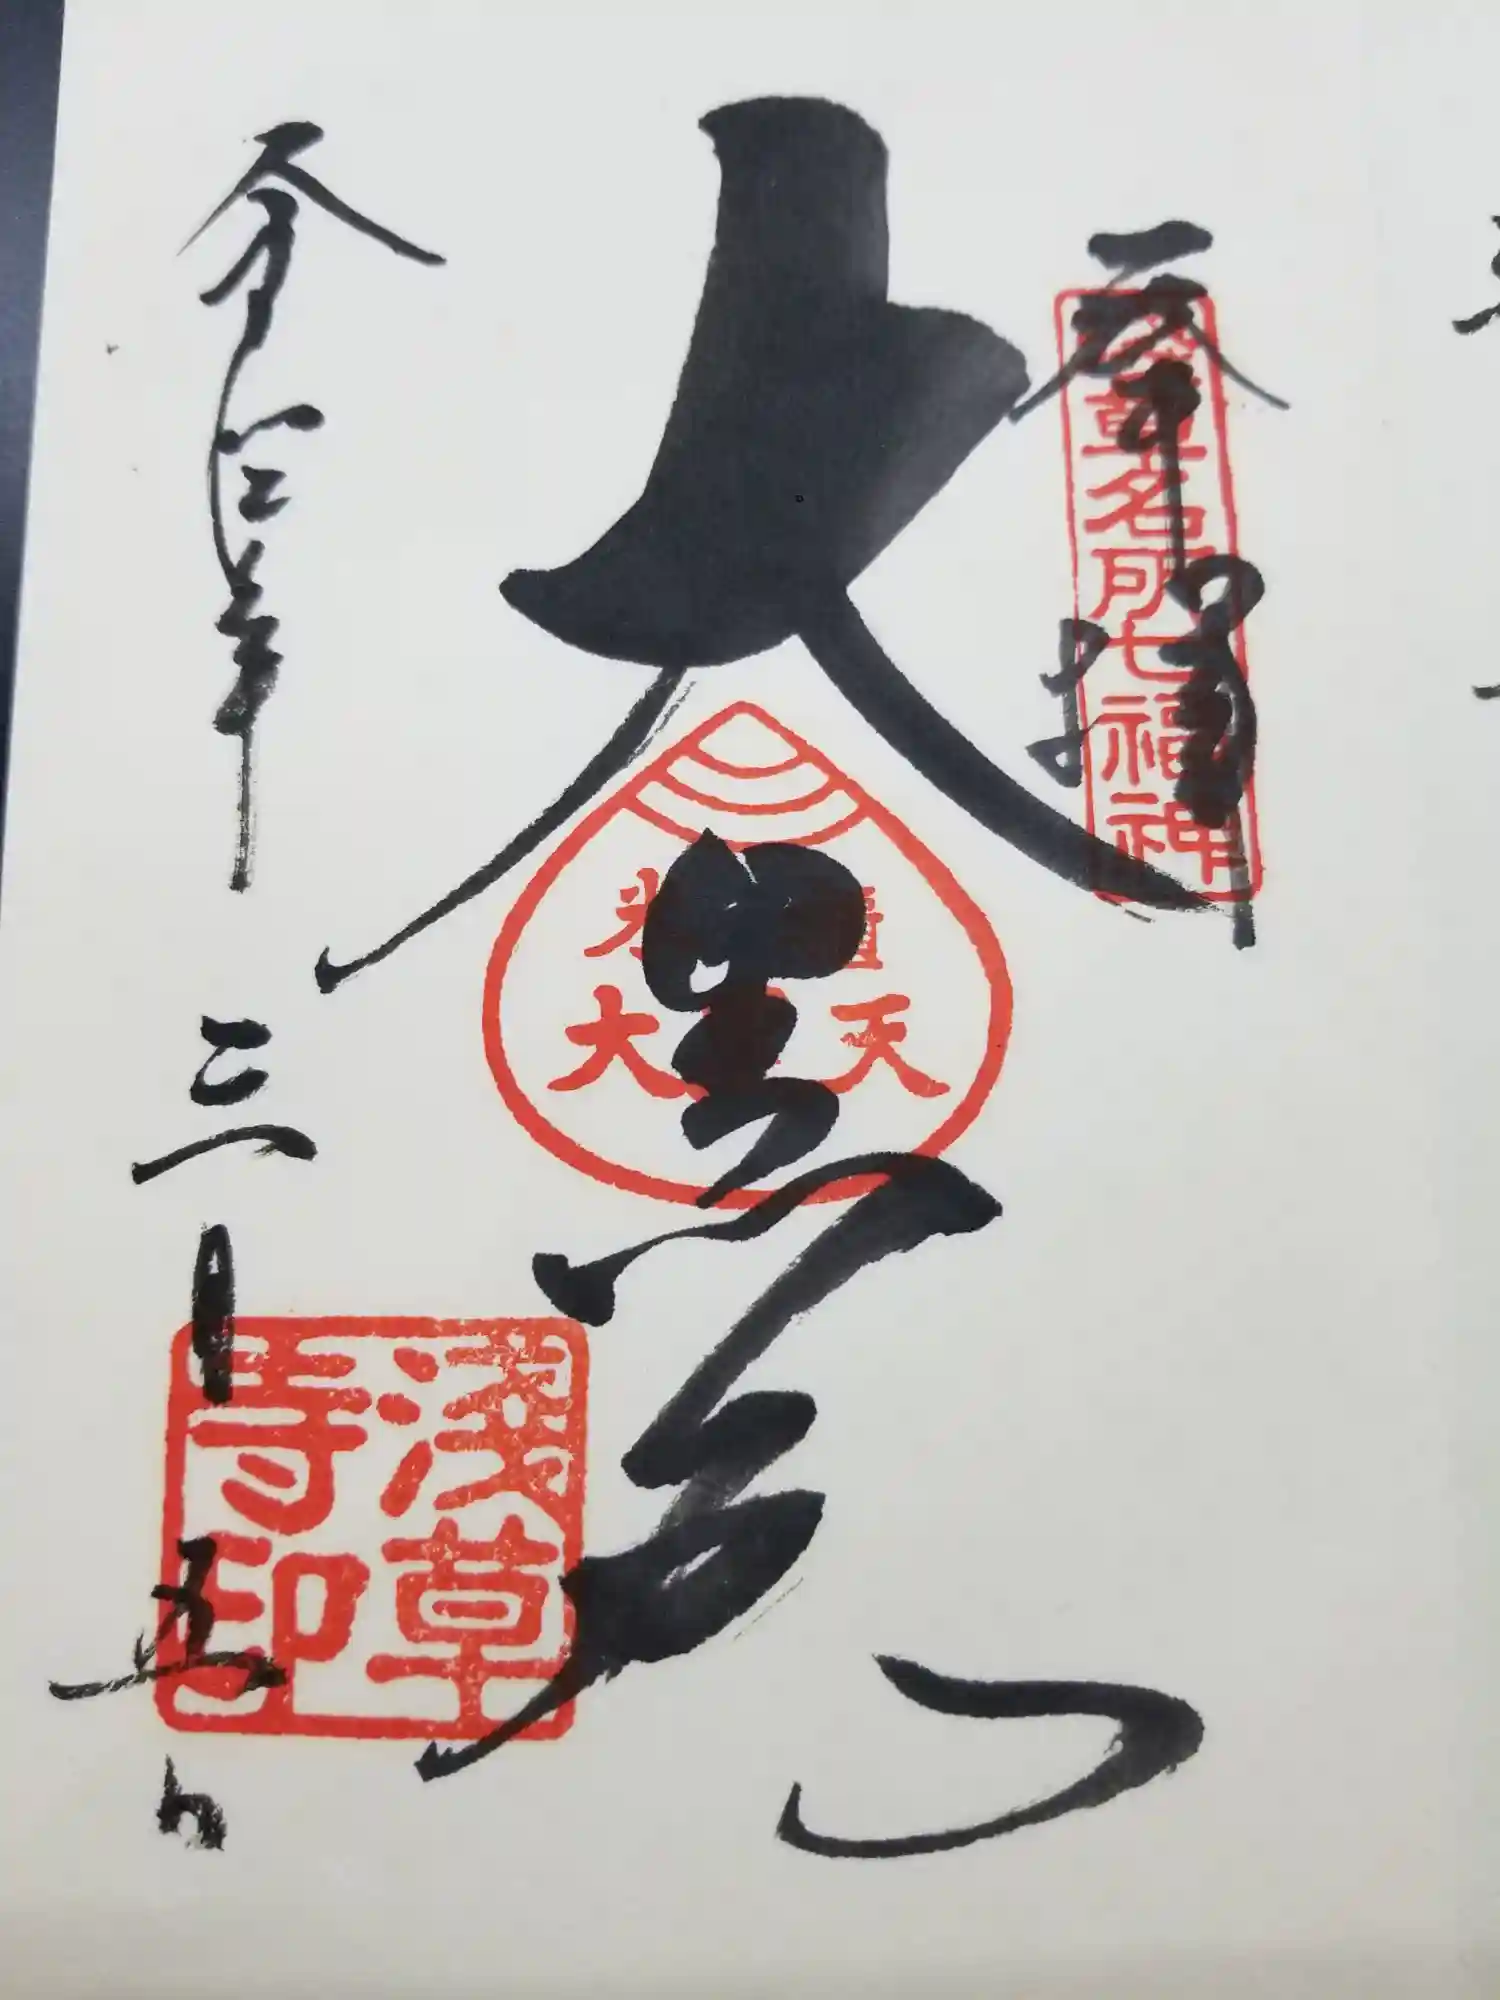 奉拝
浅草名所七福神
大黒天
米櫃
大黒天
令和四年
三月
十五日
浅草
寺印